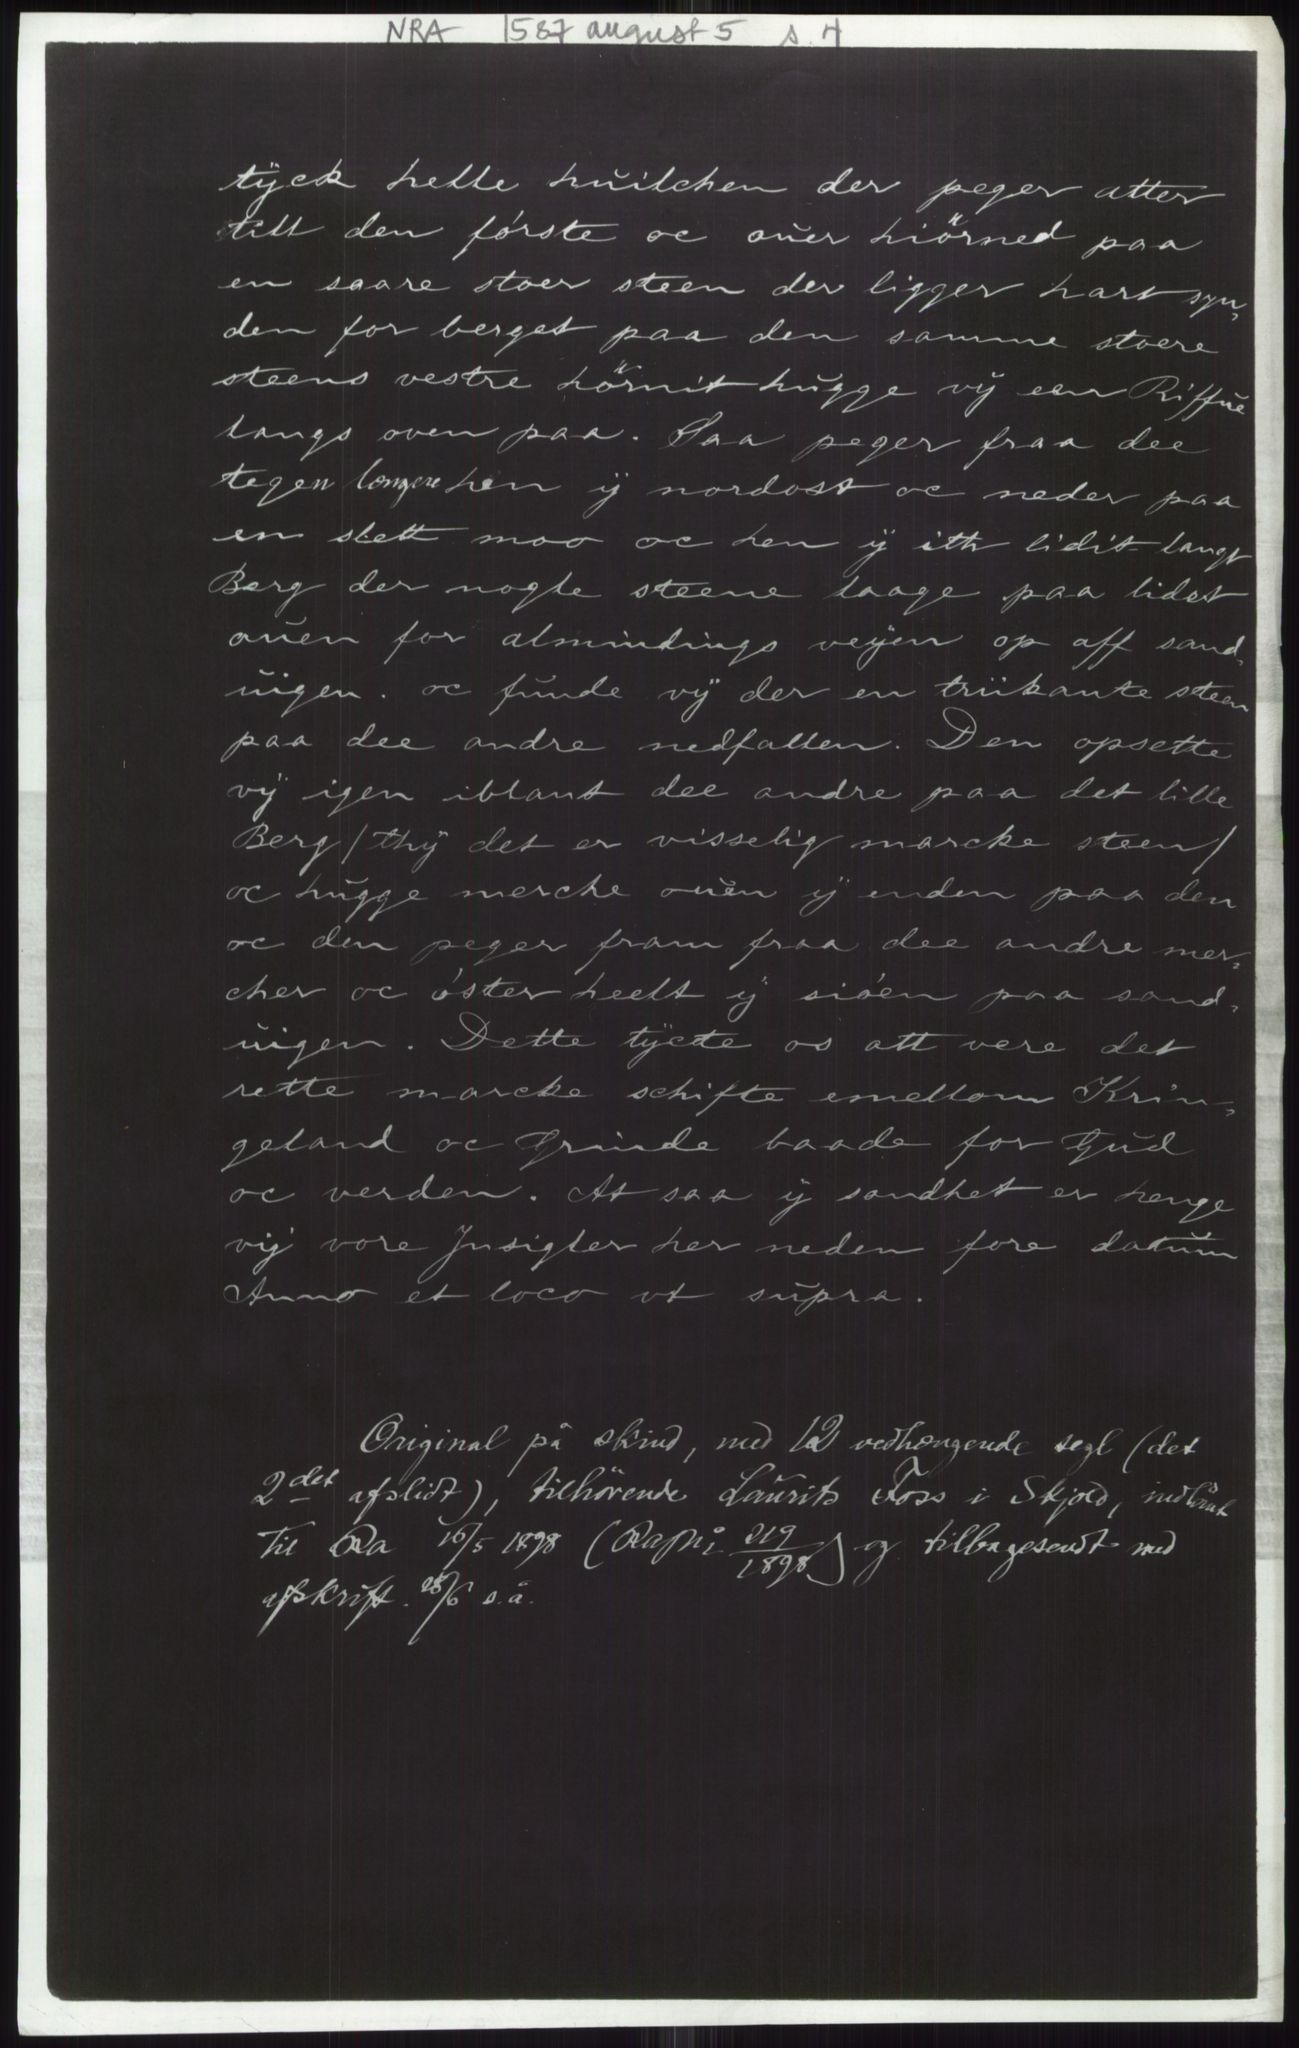 NRA 1587 august 5 s. 4
tÿck helle huilchen der peger atter
till den förste oc ouer hiörned paa
en saare stoer steen der ligger hart syn,
den for berget paa den samme stoere
steens vestre hörnit hugge vÿ een Riffue
langs oven paa. Saa peger fraa dee
tegen længere hen ÿ nordost oc neder paa
en slett moo oc hen ÿ ith lidit langt
Berg der nogle steene laage paa lidet
ouen for almindings veÿen op aff sand,
uigen. oc funde vÿ der en triikante steen
paa dee andre nedfallen. Den opsette
vÿ igen iblant dee andre paa det lille
Berg / thÿ det er visselig marcke steen /
oc hugge mercke ouen ÿ enden paa den
oc den peger fram fraa dee andre mer,
cher oc öster heelt ÿ siöen paa sand,
uigen. Dette tÿcte os att vere det
rette marcke schifte emellom Krin,
geland oc Grinde baade for Gud
oc verden. At saa ÿ sandhet er henge
vÿ vore Jnsigler her neden fore datum
Anno et loco vt supra.
Original på skind, med 12 vedhængende segl (det
2det afslidt), tilhörende Laurits Foss i Skjold, indlånt
til Ra 16/5 1898 (Ra 219/1898) og tilbagesendt med
afskrift. 28/6 s.å.